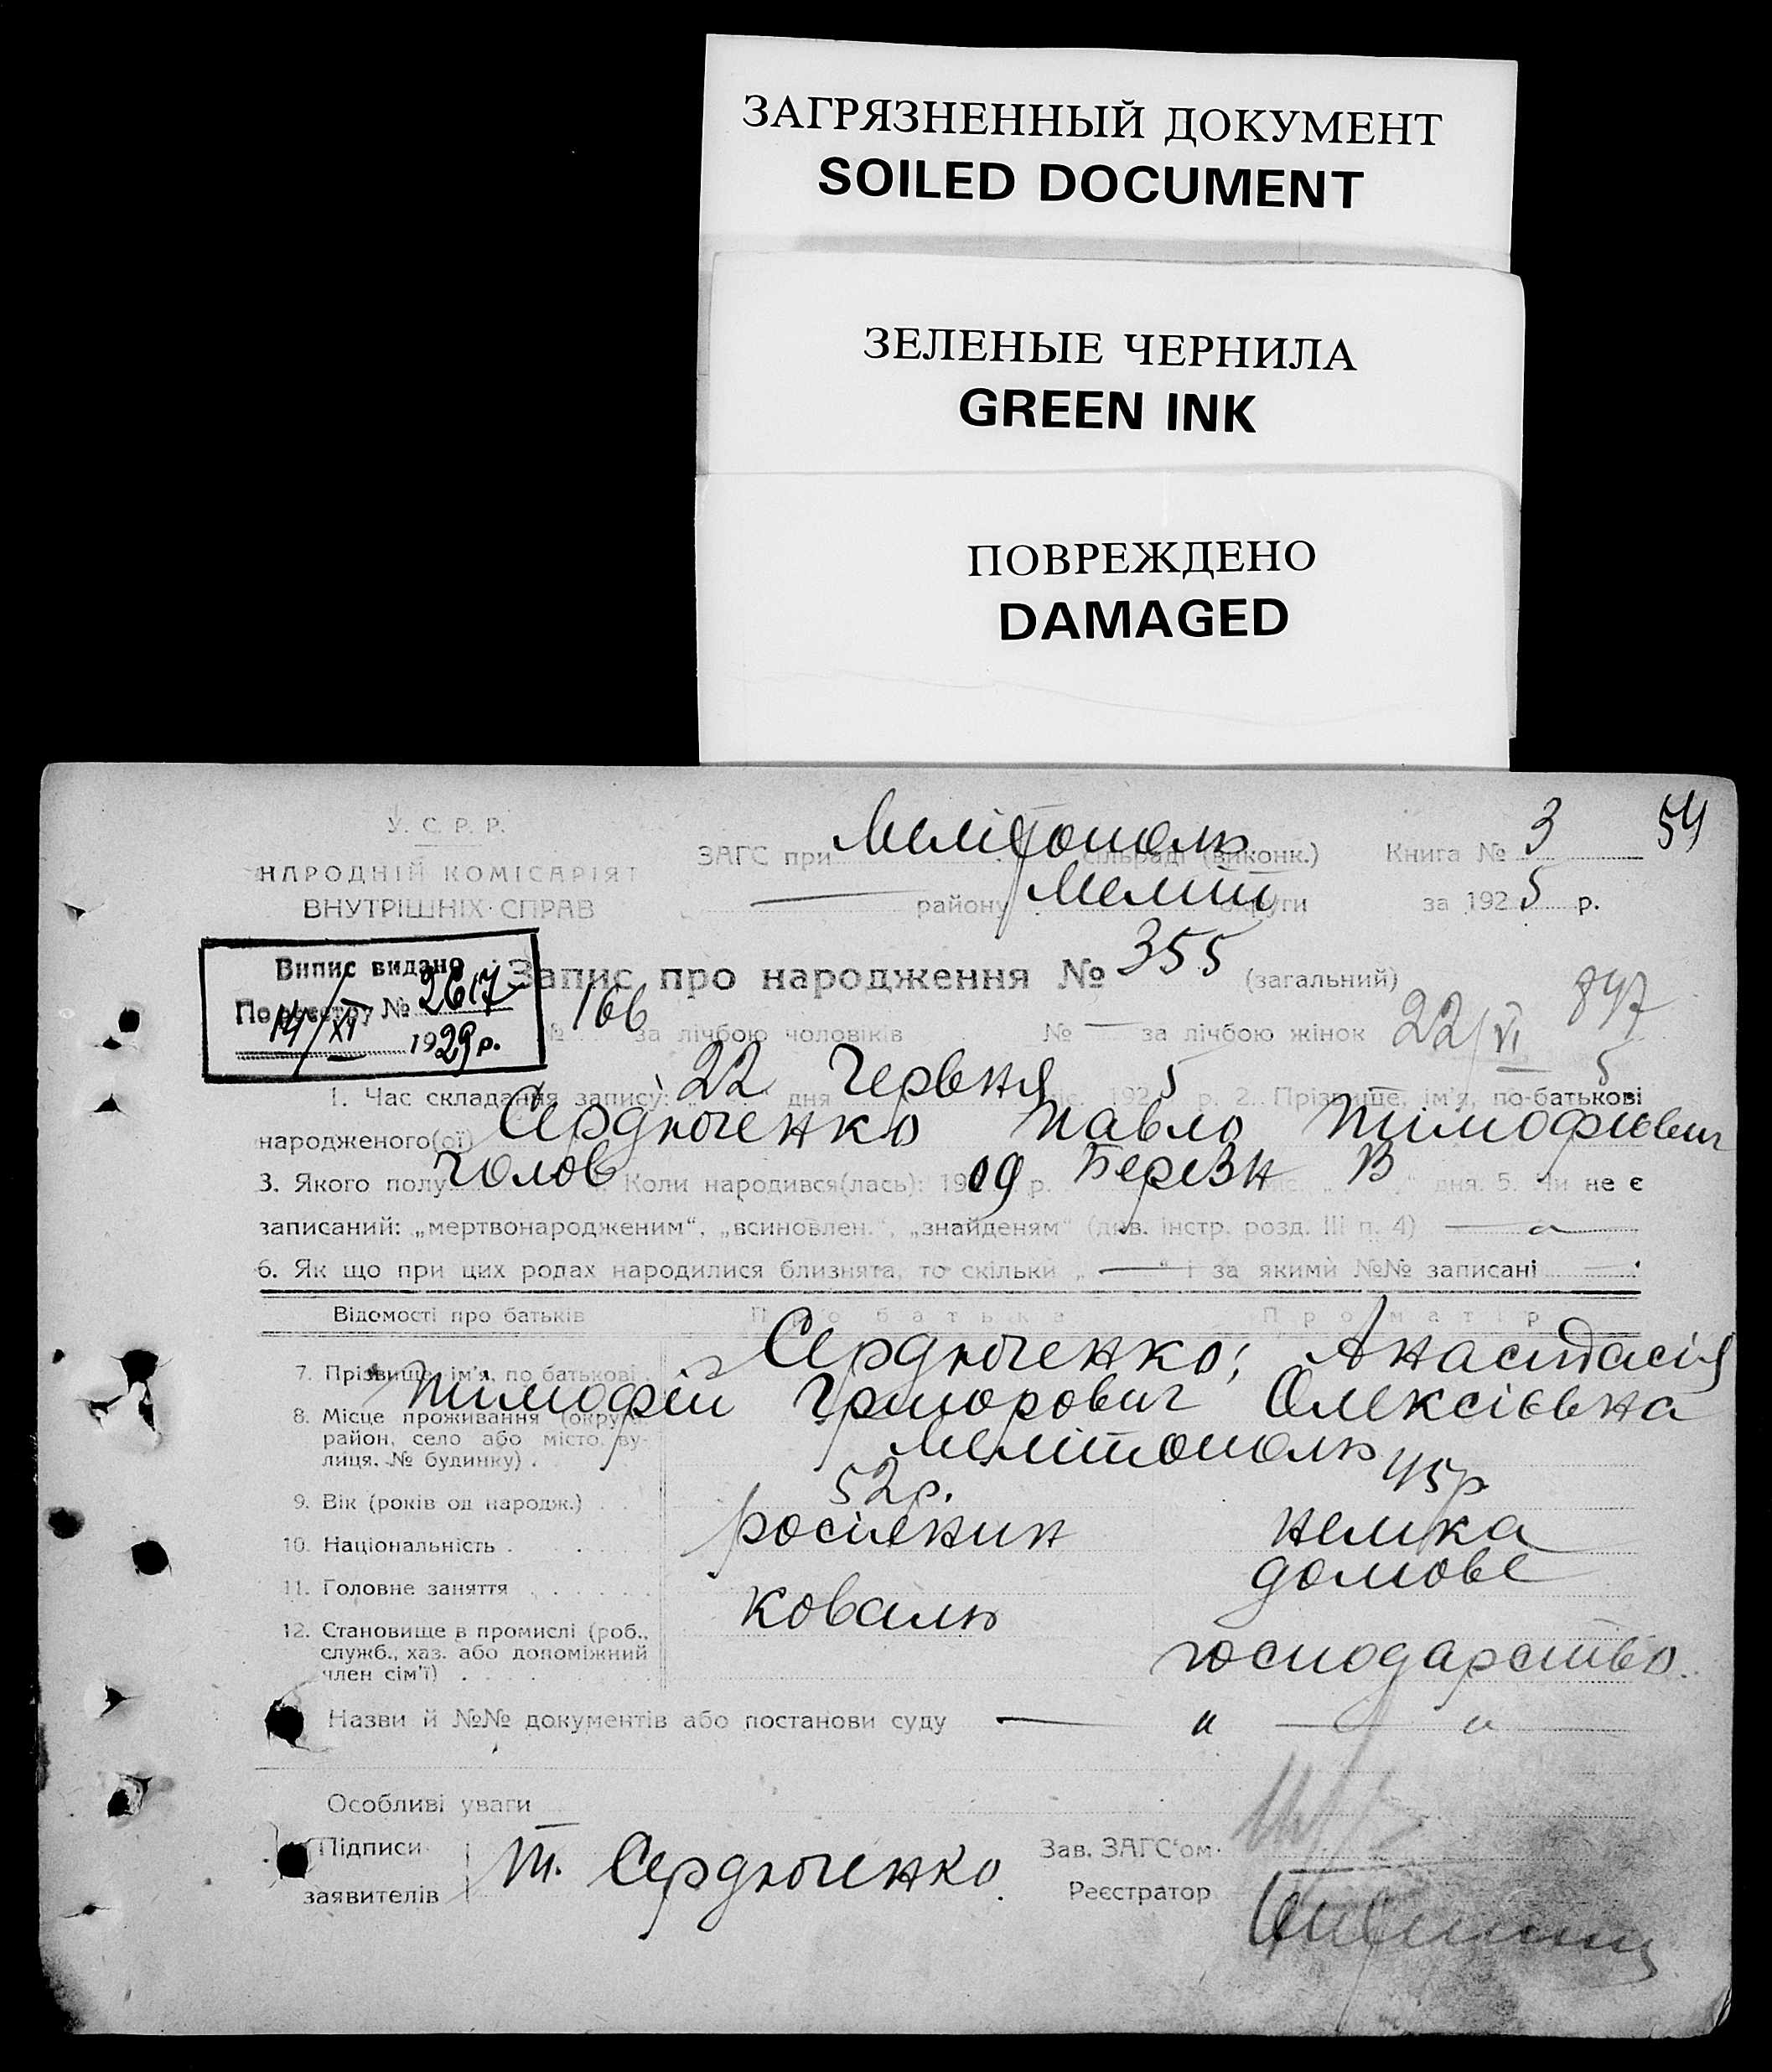 ЗАГРЯЗНЕННЫЙ ДОКУМЕНТ
SOILED DOCUMENT
ЗЕЛЕНЫЕ ЧЕРНИЛА
GREEN INK
ПОВРЕЖДЕНО
DAMAGED
У. С. Р. Р.
НАРОДНІЙ КОМІСАРІЯТ
ВНУТРІШНІХ СПРАВ
ЗАГС при Мелітополь сільраді (виконк.) Книга № 3 54
— району Меліт округи за 1925 р.
Випис видано
По реєстру № 2617
14/XI 1929 р.
Запис про народження № 355 (загальний)
№ 166 за лічбою чоловіків № — за лічбою жінок 22/VI 5 897
1. Час складання запису: 22 дня Червня міс. 1925 р. 2. Прізвище, ім'я, по-батькові
народженого(ої) Сердюченко Павло Тімофієвич
3. Якого полу чолов 4. Коли народився(лась): 1909 р. Березн міс. дня. 5. Чи не є
записаний: „мертвонародженим“, „всиновлен.“, „знайденям“ (див. інстр. розд. III п. 4) —
6. Як що при цих родах народилися близнята, то скільки „ — “ і за якими №№ записані —
Відомості про батьків Про батька Про матір
7. Прізвище, ім'я, по батькові Сердюченко, Анастасія
Тімофій Григорович Олексієвна
8. Місце проживання (округа,
район, село або місто, ву-
лиця, № будинку) . Мелітополь
9. Вік (років од народж.) . . 52р. 45р
10. Національність . . росіянин немка
11. Головне заняття . . . . . коваль домове
12. Становище в промислі (роб.,
служб., хаз. або допоміжний
член сім'ї) . . господарство
Назви й №№ документів або постанови суду — " — "
Особливі уваги —
Підписи
заявителів Т. Сердюченко
Зав. ЗАГС'ом
Реєстратор